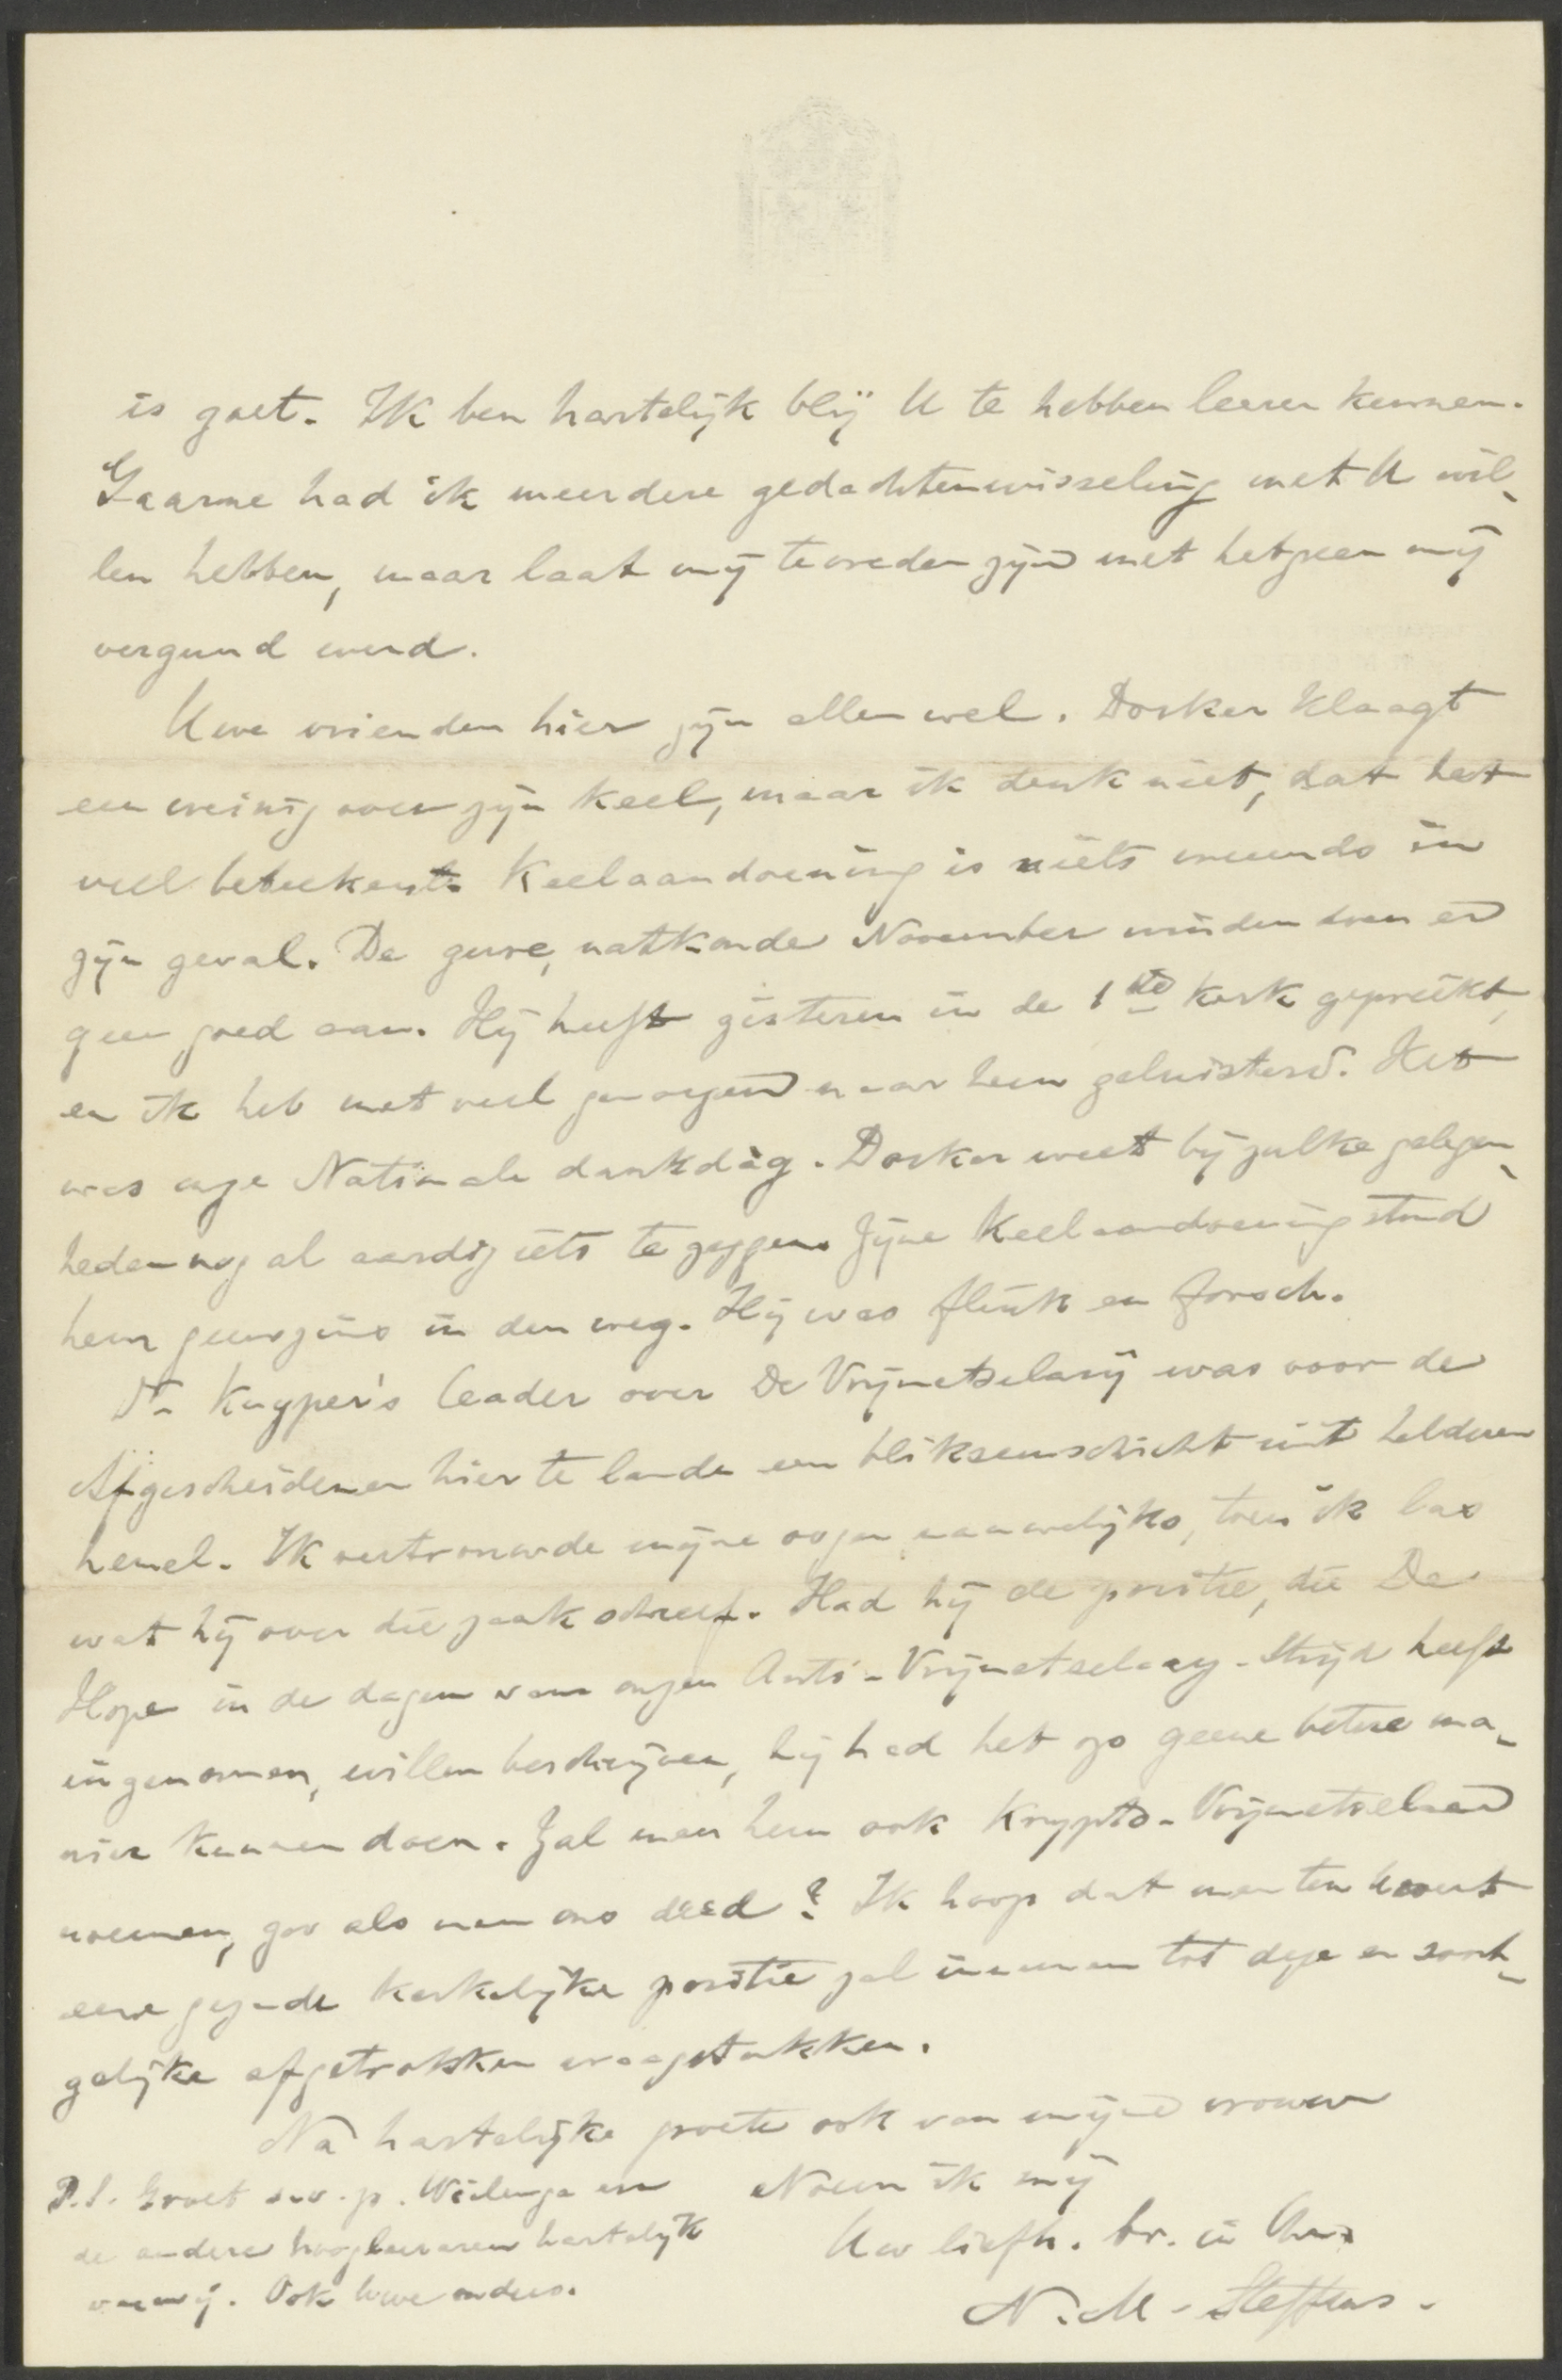 is goet. Ik ben hartelijk blij U te hebben leeren kennen.
Gaarne had ik meerdere gedachtenwisseling met U wil-
len hebben, maar laat mij tevreden zijn met hetgeen mij
vergund werd.
Uwe vrienden hier zijn allen wel. Dosker klaagt
een weinig over zijn keel, maar ik denk niet, dat het
veel beteekent. Keelaandoening is niets vreemds in
zijn geval. De gure, natkoude November winden doen er
geen goed aan. Hij heeft gisteren in de 1ste kerk gepreekt,
en ik heb met veel genoegen naar hem geluisterd. Het
was onze Nationale dankdag. Dosker weet bij zulke gelegen-
heden nog al aardig iets te zeggen. Zijne Keelaandoening stond
hem geenszins in den weg. Hij was flink en forsch.
Dr. Kuyper's leader over De Vrijmetselarij was voor de
Afgescheidenen hier te lande een bliksemschicht uit helderen
hemel. Ik vertrouwde mijne oogen nauwelijks, toen ik las
wat hij over die zaak schreef. Had hij de positie, die De
Hope in de dagen van onzen Anti-Vrijmetselary-Strijd heeft
ingenomen, willen beschrijven, hij had het op geene betere ma-
nier kunnen doen. Zal men hem ook Krypto-Vrijmetselaar
noemen, zoo als men ons deed? Ik hoop dat men ten Uwent
eene gezonde kerkelijke positie zal innemen tot deze en soort-
gelijke afgetrokken vraagstukken.
Na hartelijke groete ook van mijne vrouw
Noem ik mij
Uw liefh. br. in Chr.
N. M. Steffens.
P.S. Groet s.v.p. Wielenga en
de andere hoogleeraren hartelijk
van mij. Ook Uwe ouders.